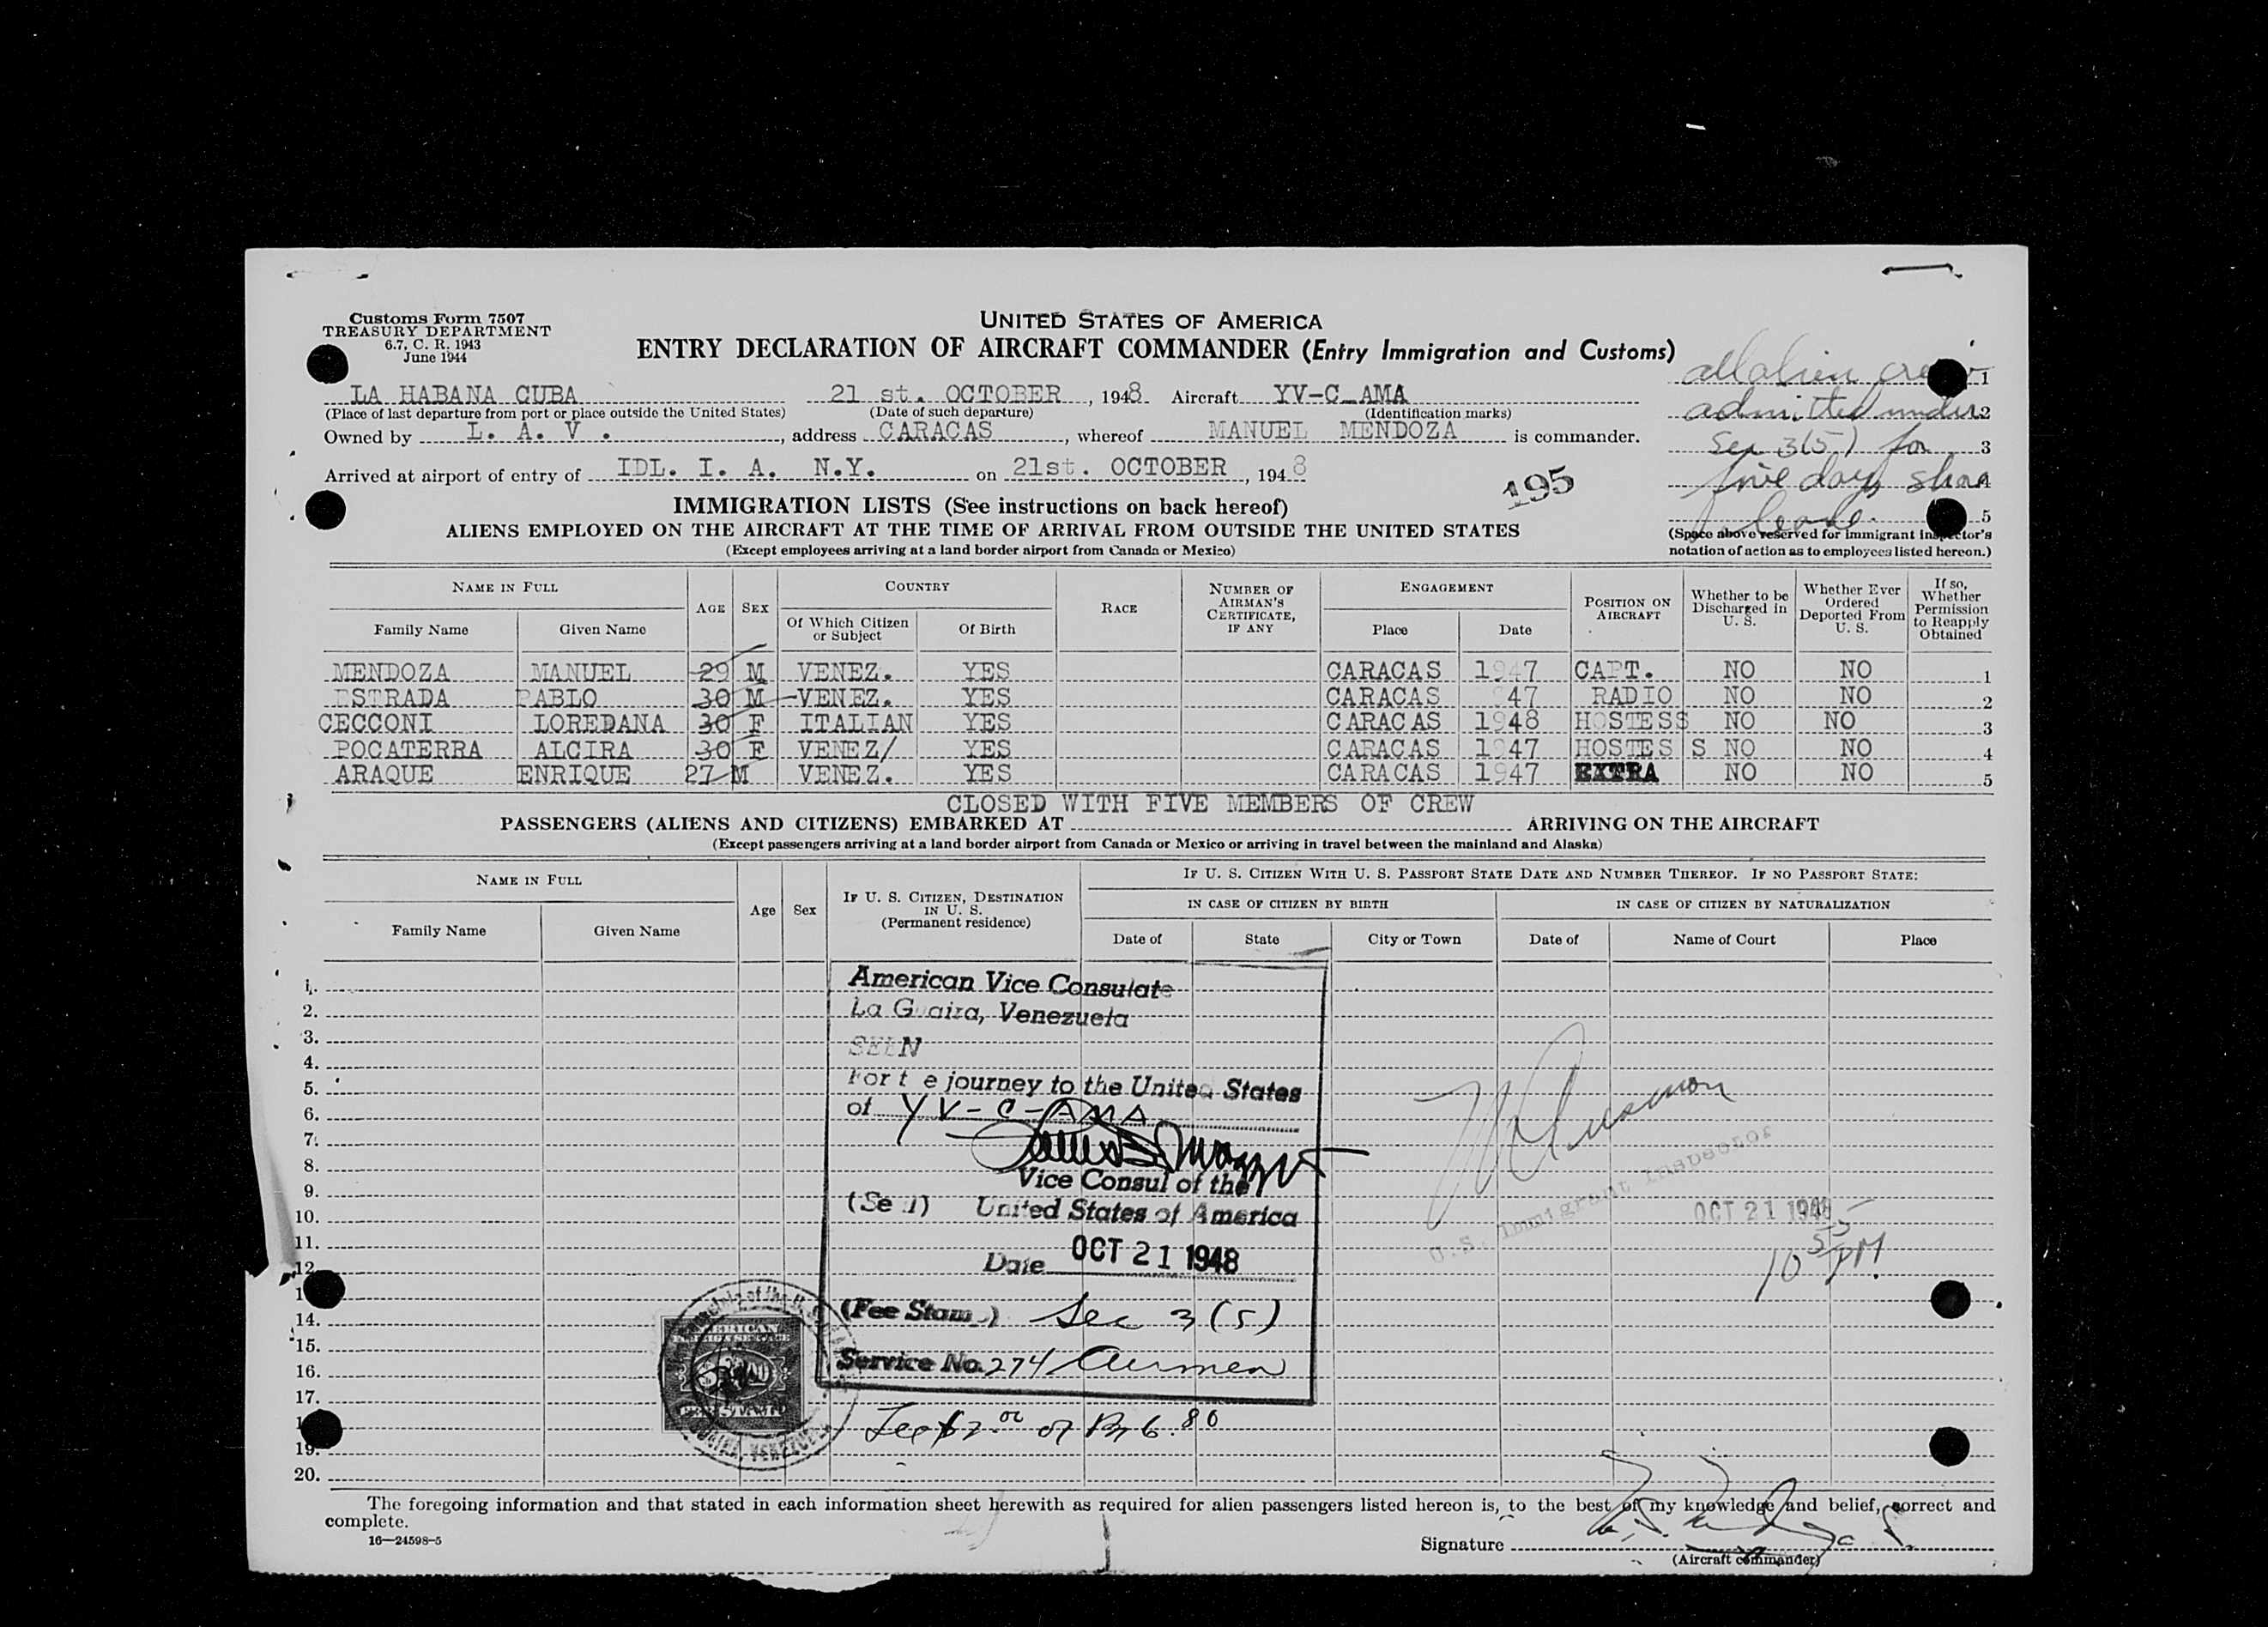 Customs Form 7507
TREASURY DEPARTMENT
6.7, C. R. 1943
June 1944
UNITED STATES OF AMERICA
ENTRY DECLARATION OF AIRCRAFT COMMANDER (Entry Immigration and Customs)
LA HABANA CUBA 21 st. OCTOBER, 1948 Aircraft YV-C-AMA
(Place of last departure from port or place outside the United States) (Date of such departure) (Identification marks)
Owned by L. A. V., address CARACAS, whereof MANUEL MENDOZA is commander.
Arrived at airport of entry of IDL. I. A. N.Y. on 21st. OCTOBER, 1948
195
all alien crew 1
admitted under 2
Sec 3(5) for 3
five days shore 4
leave. 5
(Space above reserved for immigrant inspector's
notation of action as to employees listed hereon.)
IMMIGRATION LISTS (See instructions on back hereof)
ALIENS EMPLOYED ON THE AIRCRAFT AT THE TIME OF ARRIVAL FROM OUTSIDE THE UNITED STATES
(Except employees arriving at a land border airport from Canada or Mexico)
NAME IN FULL AGE SEX COUNTRY RACE NUMBER OF AIRMAN'S CERTIFICATE, IF ANY ENGAGEMENT POSITION ON AIRCRAFT Whether to be Discharged in U. S. Whether Ever Ordered Deported From U. S. If so, Whether Permission to Reapply Obtained
Family Name Given Name Of Which Citizen or Subject Of Birth Place Date
MENDOZA MANUEL 29 M VENEZ. YES CARACAS 1947 CAPT. NO NO 1
ESTRADA PABLO 30 M VENEZ. YES CARACAS 47 RADIO NO NO 2
CECCONI LOREDANA 30 F ITALIAN YES CARACAS 1948 HOSTESS NO NO 3
POCATERRA ALCIRA 30 F VENEZ/ YES CARACAS 1947 HOSTESS NO NO 4
ARAQUE ENRIQUE 27 M VENEZ. YES CARACAS 1947 EXTRA NO NO 5
CLOSED WITH FIVE MEMBERS OF CREW
PASSENGERS (ALIENS AND CITIZENS) EMBARKED AT ARRIVING ON THE AIRCRAFT
(Except passengers arriving at a land border airport from Canada or Mexico or arriving in travel between the mainland and Alaska)
NAME IN FULL Age Sex IF U. S. CITIZEN, DESTINATION IN U. S. (Permanent residence) IF U. S. CITIZEN WITH U. S. PASSPORT STATE DATE AND NUMBER THEREOF. IF NO PASSPORT STATE:
IN CASE OF CITIZEN BY BIRTH IN CASE OF CITIZEN BY NATURALIZATION
Family Name Given Name Date of State City or Town Date of Name of Court Place
1.
2.
3.
4.
5.
6.
7.
8.
9.
10.
11.
12.
14.
15.
16.
17.
19.
20.
American Vice Consulate
La Guaira, Venezuela
SEEN
For the journey to the United States
of YV-C-AMA
Vice Consul of the
(Seal) United States of America
Date OCT 21 1948
(Fee Stamp) Sec 3 (5)
Service No. 274 Airmen
Fee $2.00 or Bs 6.80
U.S. Immigrant Inspector
OCT 21 1948
10 55 PM
The foregoing information and that stated in each information sheet herewith as required for alien passengers listed hereon is, to the best of my knowledge and belief, correct and
complete.
16—24598-5
Signature
(Aircraft commander)